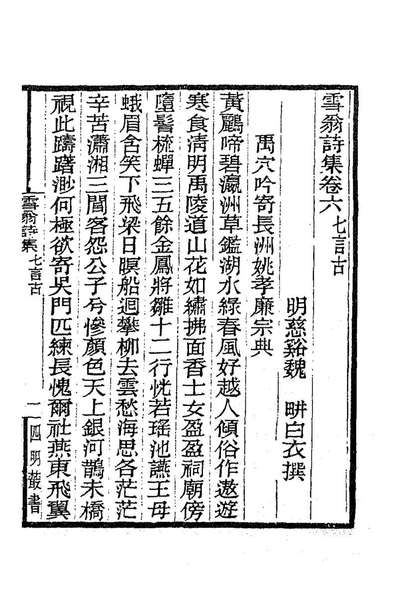 雪翁詩集卷六 七言古
明慈谿魏　畊白衣撰
禹穴吟寄長洲姚孝廉宗典
黃鸝啼碧瀛洲草鑑湖水綠春風好越人傾俗作遨遊
寒食清明禹陵道山花如繡拂面香士女盈盈祠廟傍
墮髻梳蟬三五餘金鳳將雛十二行恍若瑤池讌王母
蛾眉含笑下飛梁日暝船迴攀柳去雲愁海思各茫茫
辛苦瀟湘三閭客怨公子兮慘顏色天上銀河鵲未橋
視此躊躇渺何極欲寄吳門匹練長愧爾社燕東飛翼
雪翁詩集 七言古
一 四明叢書